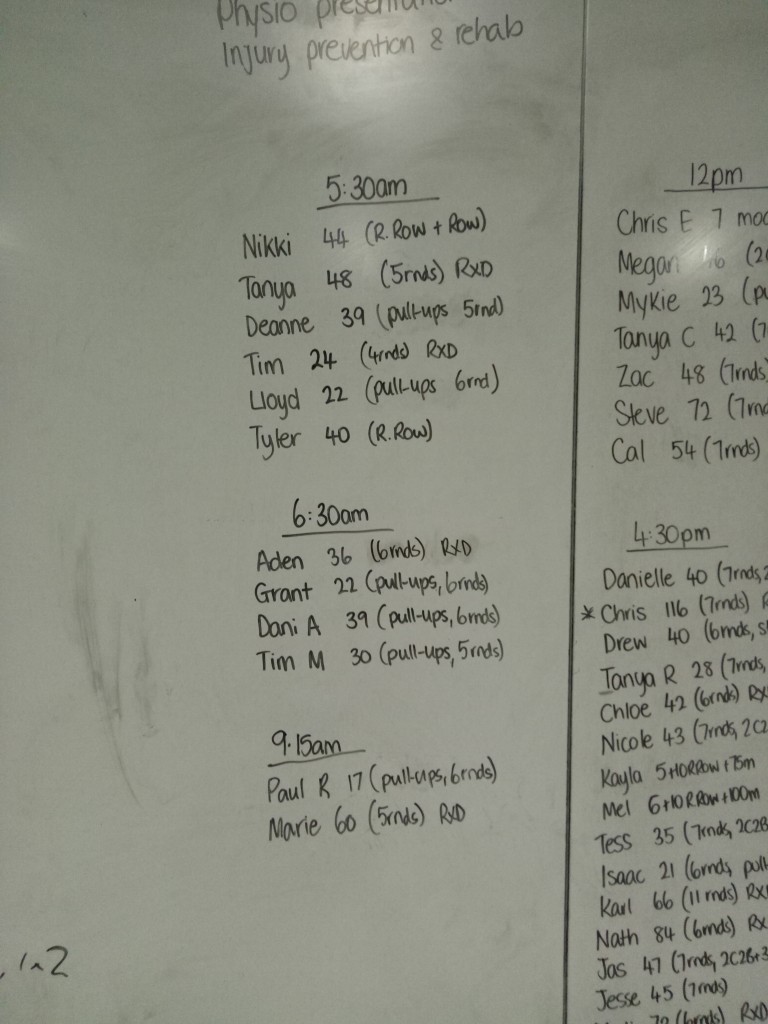 Physio
Injury prevention & rehab
5:30am
Nikki 44 (R.Row + Row)
Tanya 48 (5rnds) RXD
Deanne 39 (pull-ups 5rnd)
Tim 24 (4rnds) RXD
Lloyd 22 (pull-ups 6rnd)
Tyler 40 (R.Row)
6:30am
Aden 36 (6rnds) RXD
Grant 22 (pull-ups, 6rnds)
Dani A 39 (pull-ups, 6rnds)
Tim M 30 (pull-ups, 5rnds)
9.15am
Paul R 17 (pull-ups, 6rnds)
Marie 60 (5rnds) RXD
12pm
Chris E 7
Megan
Mykie 23
Tanya C 42 (7
Zac 48 (7rnds)
Steve 72 (7rnd
Cal 54 (7rnds)
4:30pm
Danielle 40 (7rnds,
* Chris 116 (7rnds)
Drew 40 (6rnds,
Tanya R 28 (7rnds,
Chloe 42 (6rnds) RX
Nicole 43 (7rnds, 2C2
Kayla 5+10RRow+75m
Mel 6+10RRow+100m
Tess 35 (7rnds, 2C2B
Isaac 21 (6rnds, pull
Karl 66 (11rnds) RX
Nath 84 (6rnds) RX
Jas 47 (7rnds, 2C2B+3
Jesse 45 (7rnds)
(6rnds) RXD